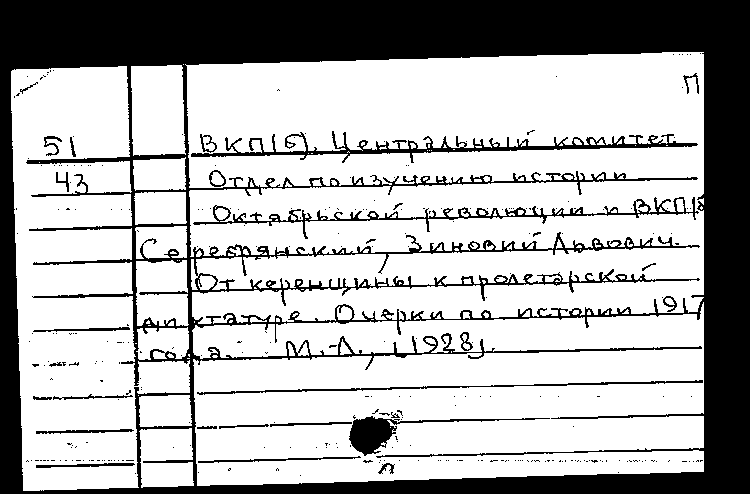 П
51 ВКП(б). Центральный комитет.
43 Отдел по изучению истории
Октябрьской революции и ВКП(б
Серебрянский, Зиновий Львович.
От керенщины к пролетарской
диктатуре. Очерки по истории 1917
года. М.-Л., [1928].